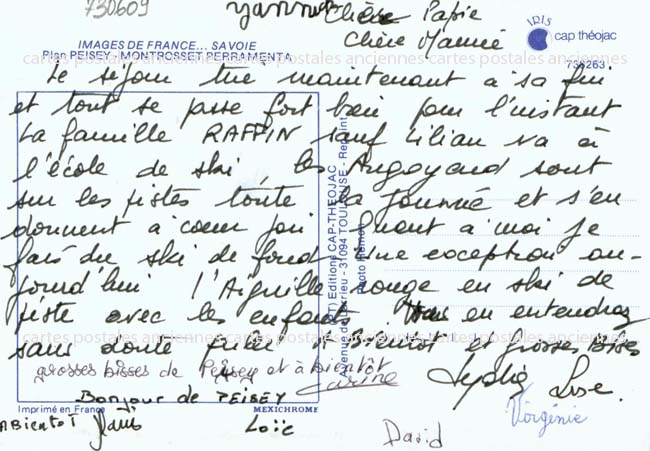 730609
Yannick
Chère Papie
Chère Mamie
IRIS
cap théojac
IMAGES DE FRANCE... SAVOIE
Plan PEISEY - MONTROSSET PERRAMENTA
731263
cartes postales anciennes cartes postales anciennes cartes postales anciennes
Le séjour tire maintenant à sa fin
et tout se passe fort bien pour l'instant
La famille RAFFIN sauf Lilian va à
l'école de ski, les Angoyard sont
sur les pistes toute la journée et s'en
donnent à coeur joie. Quant à moi je
fais du ski de fond. Une exception au-
jourd'hui l'Aiguille rouge en ski de
piste avec les enfants. Vous en entendrez
sans doute parler. Bientôt et grosses bises
cartes postales anciennes cartes postales anciennes cartes postales anciennes
(PT) Editions CAP-THEOJAC
31094 TOULOUSE - Reprint
Photo
grosses bises de Peisey et à bientôt
Carine
Lydie Lise.
Bonjour de PEISEY
Imprimé en France
MEXICHROME
A Bientôt
Loïc
David
Virginie